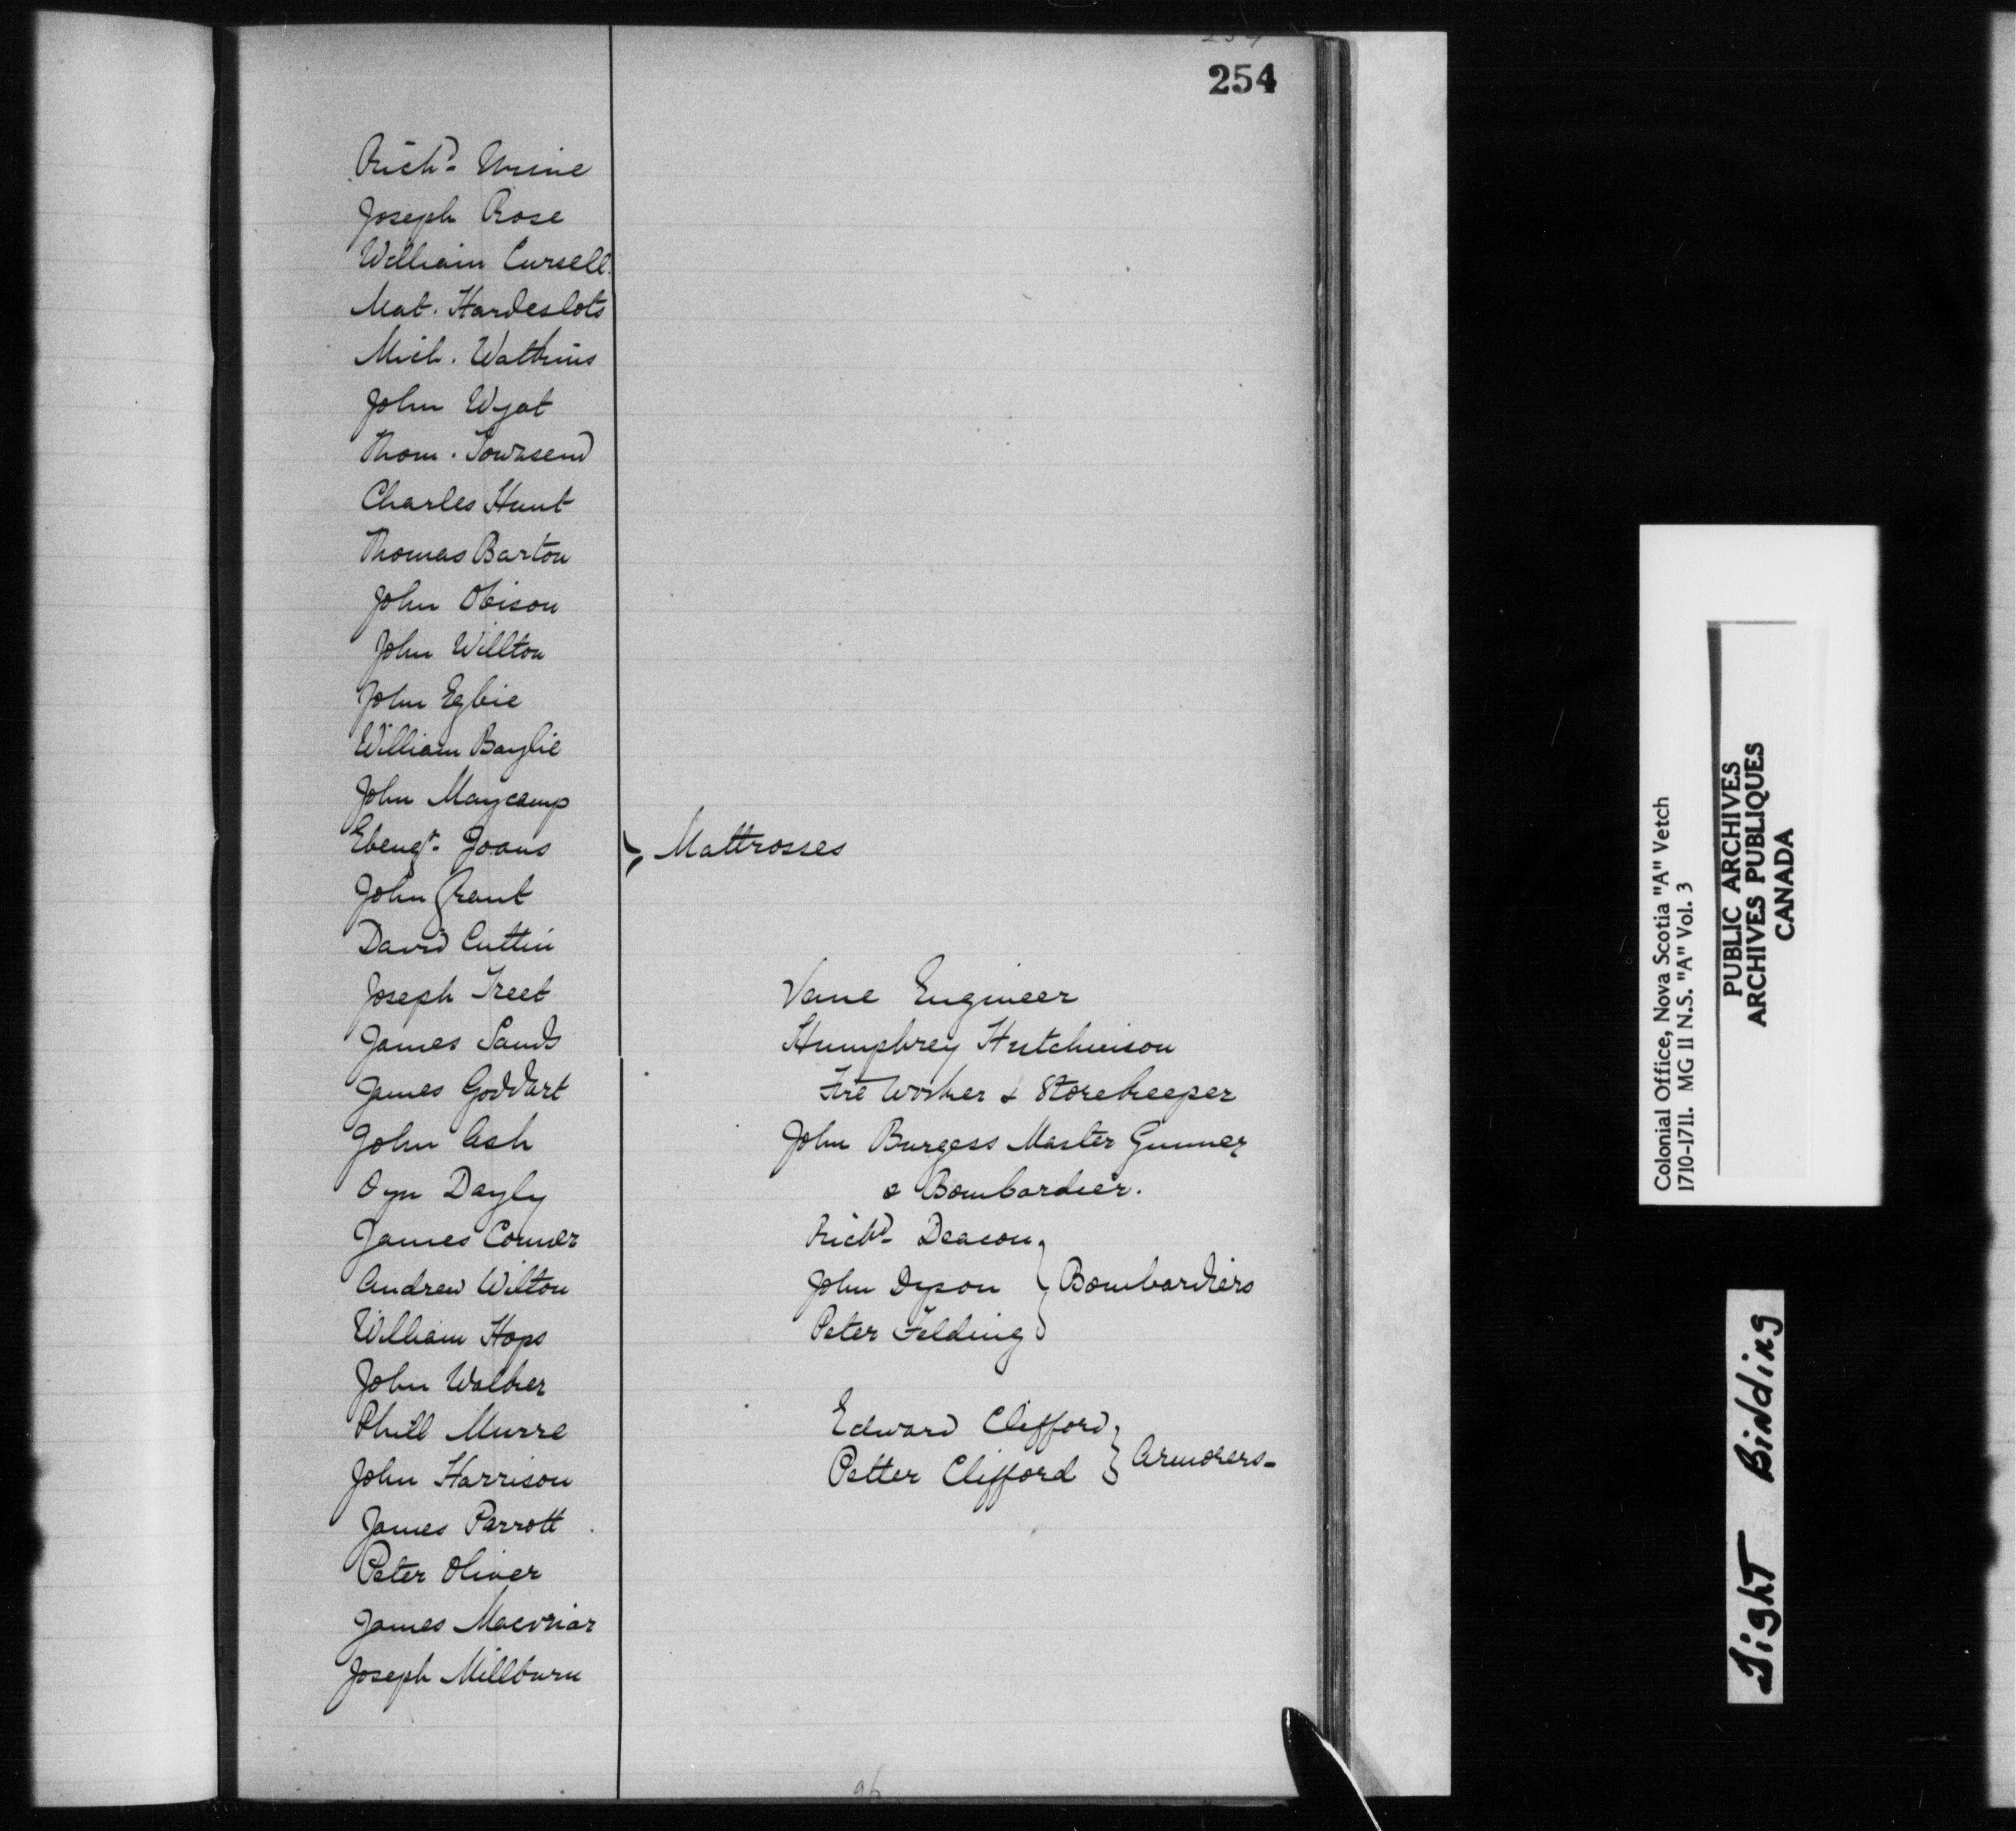 254
Richd. Urine
Joseph Rose
William Cursell.
Mat. Hardeslots
Mich. Watkins
John Wyat
Thom. Townsend
Charles Hunt
Thomas Barton
John Obison
John Willton
John Egbie
William Baylie
John Maycamp
Ebenezr. Joans
Mattrosses
John Grant
David Cuttin
Joseph Treet
James Sands
James Goddart
John Ash
Dayly
James Conner
Andrew Wilton
William Hops
John Walker
Phill Murre
John Harrison
James Parrott
Peter Oliver
James Macvriar
Joseph Millburn
Vane Engineer
Humphrey Hutchinson
Fire Worker & Storekeeper
John Burgess Master Gunner
& Bombardier.
Richd. Deacon
John Dyson } Bombardiers
Peter Felding
Edward Clifford
Petter Clifford } Armorers-
96
Colonial Office, Nova Scotia "A" Vetch
1710-1711. MG 11 N.S. "A" Vol. 3
PUBLIC ARCHIVES
ARCHIVES PUBLIQUES
CANADA
Tight Binding